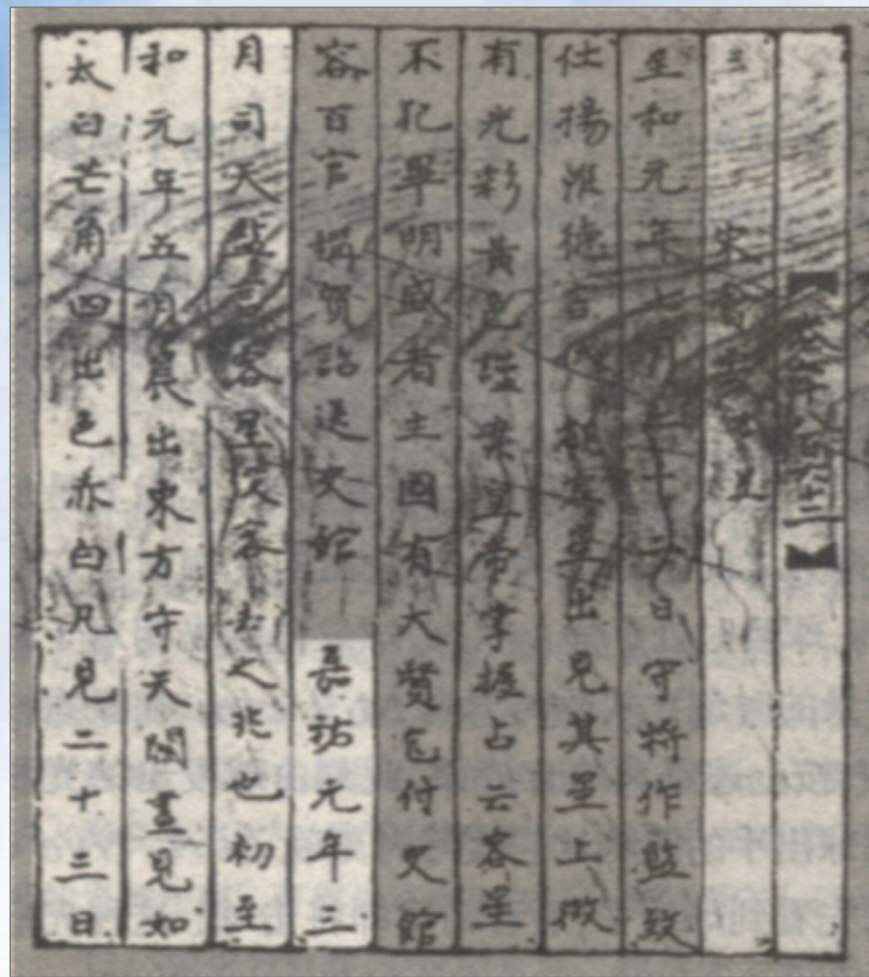 宋會要
至和元年七月二十二日守將作監致
仕揚惟德言伏覩客星出見其星上微
有光彩黃色謹案皇帝掌握占云客星
不犯畢明盛者主國有大賢乞付史館
容百官稱賀詔送史館 嘉祐元年三
月司天監言客星沒客去之兆也初至
和元年五月晨出東方守天關晝見如
太白芒角四出色赤白凡見二十三日